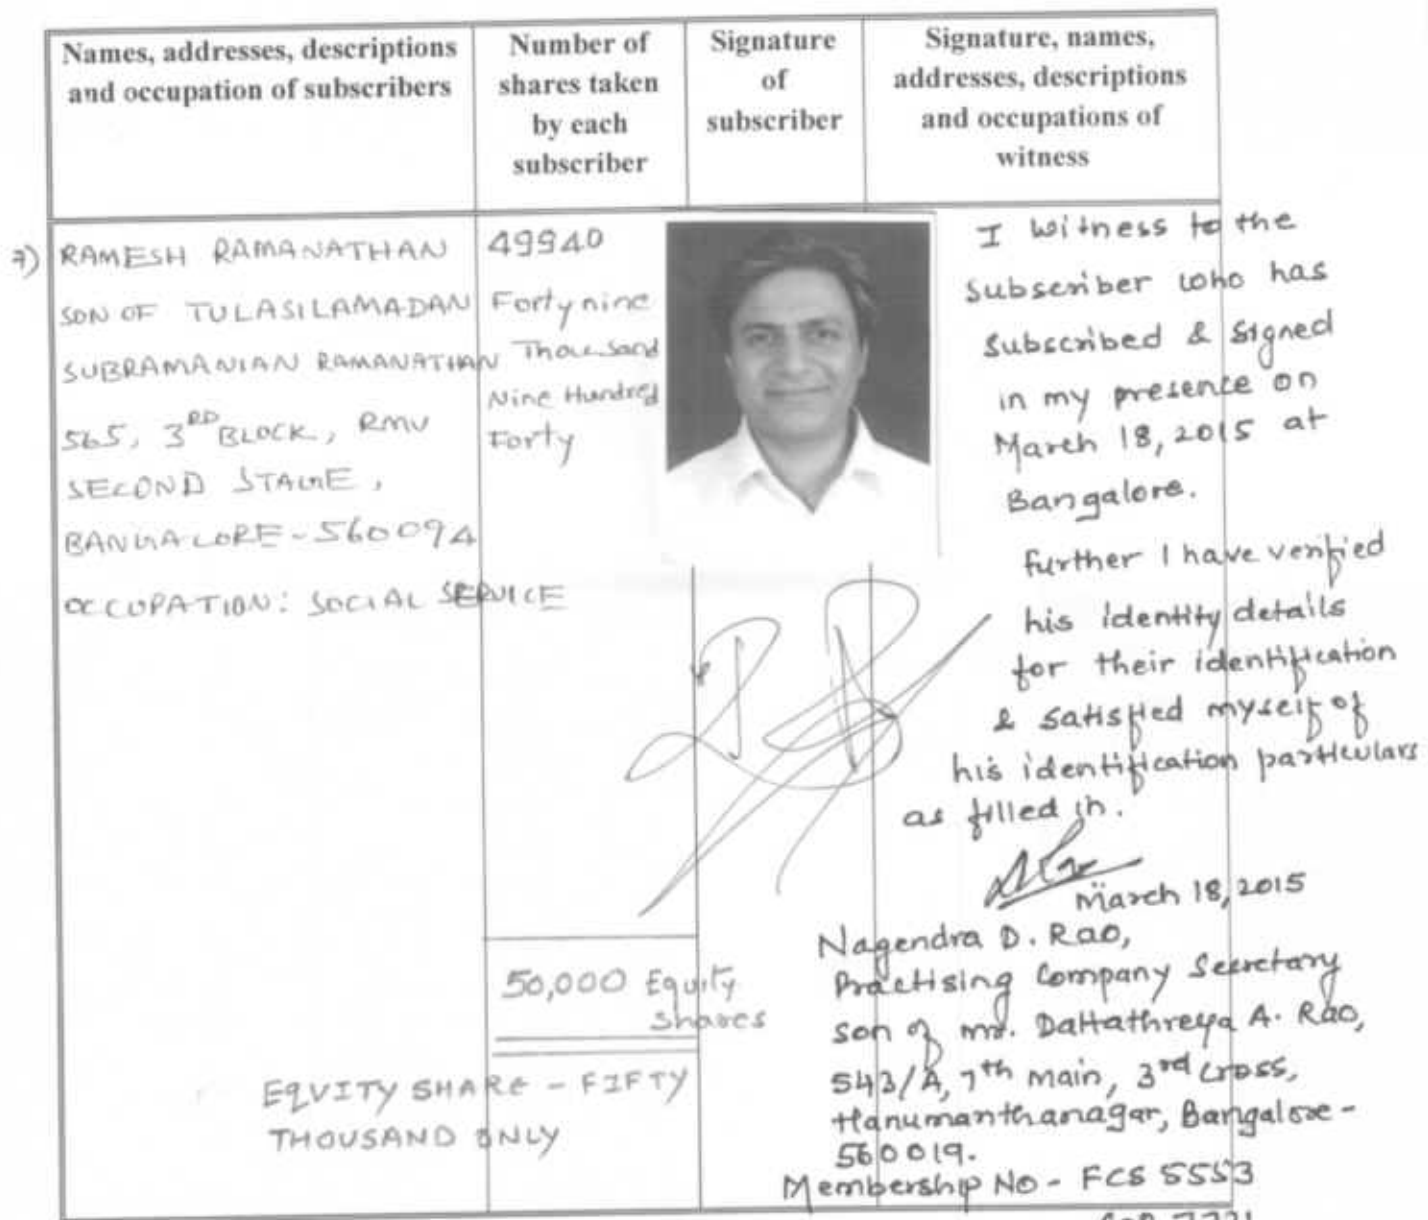 Names, addresses, descriptions
and occupation of subscribers
Number of
shares taken
by each
subscriber
Signature
of
subscriber
Signature, names,
addresses, descriptions
and occupations of
witness
7) RAMESH RAMANATHAN
SON OF TULASILAMADAN
SUBRAMANIAN RAMANATHAN
565, 3RD BLOCK, RMV
SECOND STAGE,
BANGALORE - 560094
OCCUPATION: SOCIAL SERVICE
49940
Forty nine
Thousand
Nine Hundred
Forty
I witness to the
Subscriber who has
Subscribed & signed
in my presence on
March 18, 2015 at
Bangalore.
further I have verified
his identity details
for their identification
& satisfied myself of
his identification particulars
as filled in.
March 18, 2015
Nagendra D. Rao,
Practising Company Secretary
son of mr. Dattathreya A. Rao,
543/A, 7th main, 3rd cross,
Hanumanthanagar, Bangalore -
560019.
Membership No - FCS 5553
50,000 Equity
Shares
EQUITY SHARE - FIFTY
THOUSAND ONLY